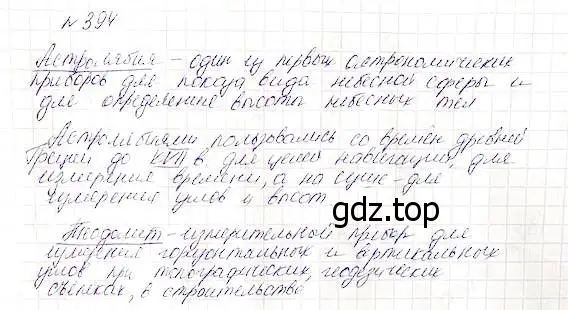 № 394
Астролябия - один из первых астрономических
приборов для показа вида небесной сферы и
для определение высоты небесных тел
Астролябиями пользовались со времён древней
Греции до XVII в для целей навигации, для
измерения времени, а на суше - для
измерения углов и высот
gdz.top
Теодолит - измерительный прибор для
измерения горизонтальных и вертикальных
углов при топографических, геодезических
съёмках, в строительстве